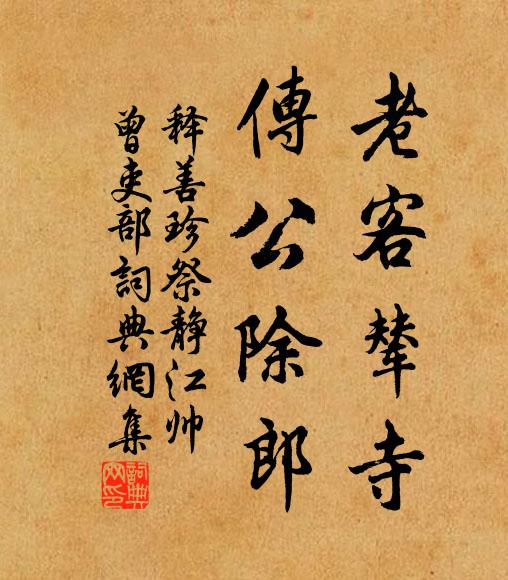 老客輦寺
傳公除郎
释善珍祭静江帅
曾吏部詞典網集
詞典網印